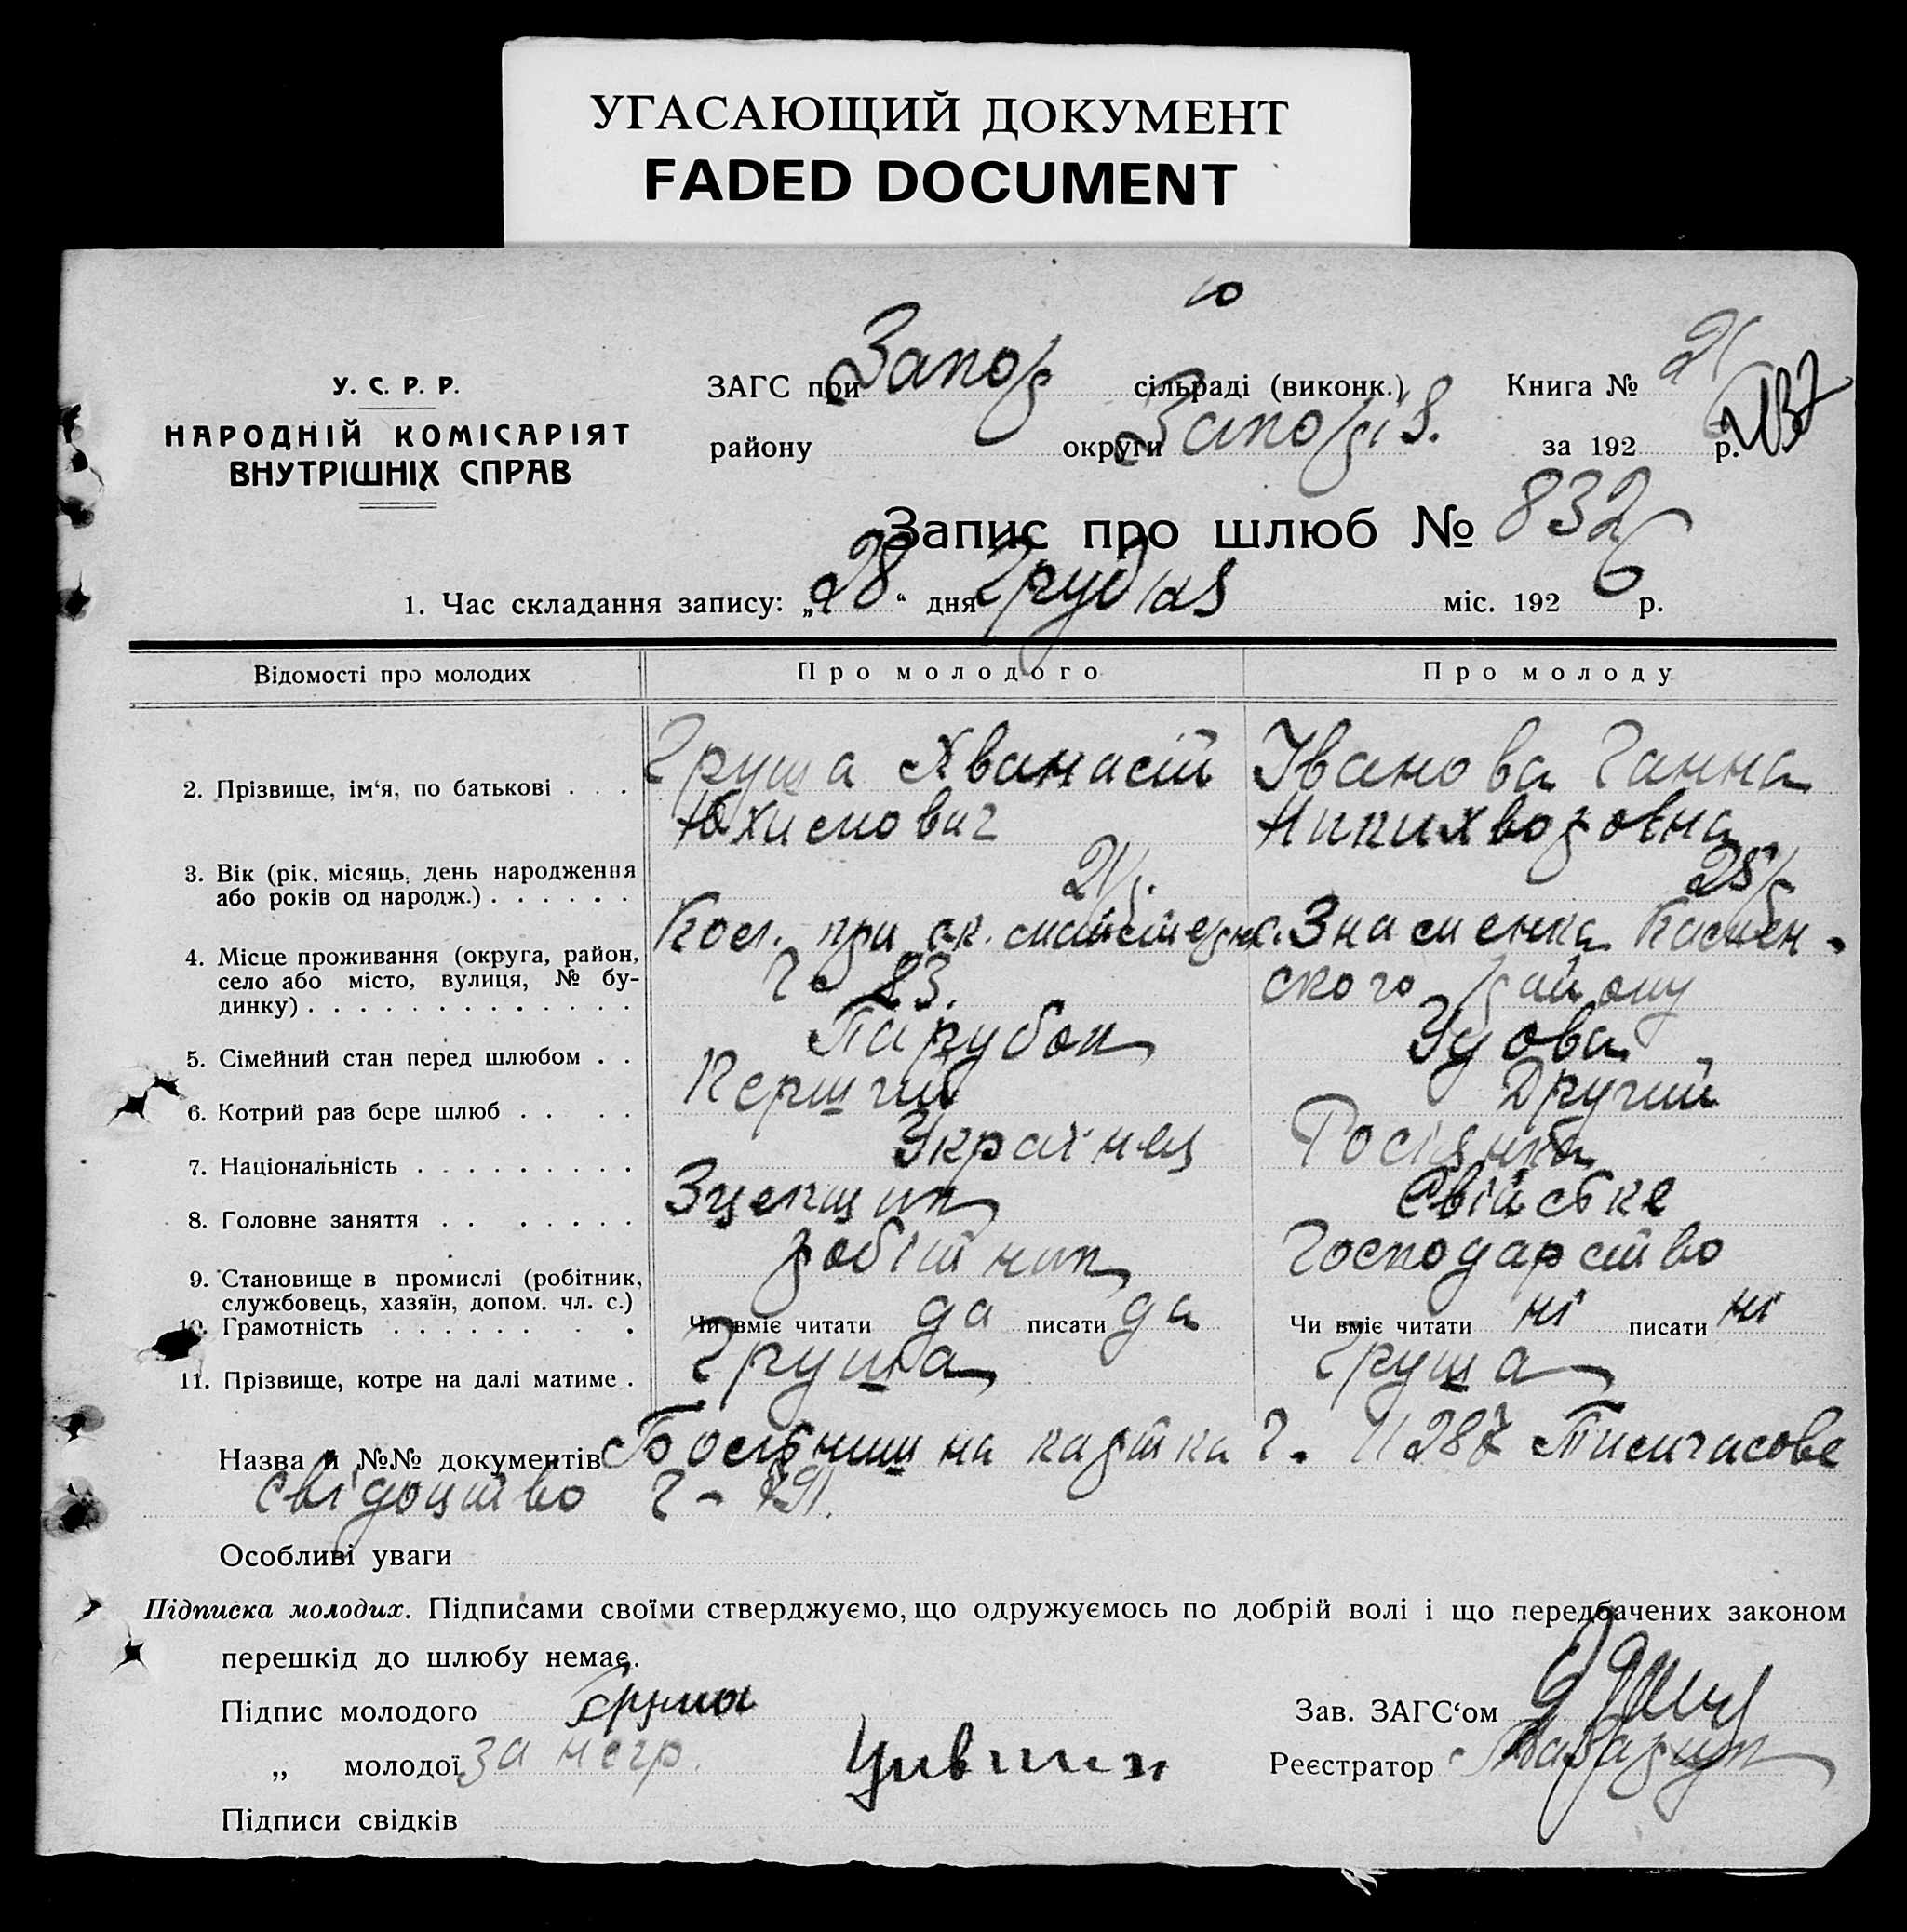 УГАСАЮЩИЙ ДОКУМЕНТ
FADED DOCUMENT
10
У. С. Р. Р.
НАРОДНІЙ КОМІСАРІЯТ
ВНУТРІШНІХ СПРАВ
ЗАГС при Запор сільраді (виконк.) Книга № 21
району округи Запоріз. за 192 6 р.
Запис про шлюб № 832
1. Час складання запису: „28“ дня Грудня міс. 192 6 р.
Відомості про молодих Про молодого Про молоду
2. Прізвище, ім‘я, по батькові . . . Груша Хванасій Іванова Ганна
Юхимович Никихворовна
3. Вік (рік, місяць, день народження 21 р. 25 р
або років од народж.) . . . . . .
4. Місце проживання (округа, район, Кол. при ск. Знаменка Камен-
село або місто, вулиця, № бу- Ч- 83. ского району
динку) . . . . . . . . . . . . .
5. Сімейний стан перед шлюбом . . Парубок Удова
6. Котрий раз бере шлюб . . . . Перший Другий
7. Національність . . . . . . . . . Українец Росіянка
8. Головне заняття . . . . . . . Зцепщик Свійске
9. Становище в промислі (робітник, робітник Господарство
службовець, хазяїн, допом. чл. с.)
10. Грамотність . . . . . . . . Чи вміє читати да писати да Чи вміє читати ні писати ні
11. Прізвище, котре на далі матиме . Груша Груша
Назва й №№ документів картка Ч. 11287 Тимчасове
свідоцтво Ч- 791.
Особливі уваги
Підписка молодих. Підписами своїми стверджуємо, що одружуємось по добрій волі і що передбачених законом
перешкід до шлюбу немає.
Підпис молодого Груша Зав. ЗАГС‘ом
„ молодої за негр. Реєстратор
Підписи свідків